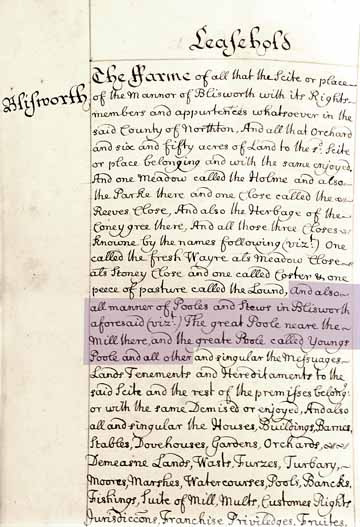 Leasehold
Blisworth
The ffarme of all that the Scite or place
of the Mannor of Blisworth with its Rights
members and appurtences whatsoever in the
said County of Northton, And all that Orchard
and six and fifty acres of Land to the sd. Scite
or place belonging and with the same enjoyed
And one Meadow called the Holme and also
the Parke there and one Close called the
Reeves Close, And also the Herbage of the
Coneygree there, And all those three Closes
knowne by the names following (vizt.) One
called the fresh Wayre als Meadow Close
als Stoney Close and one called Coster & one
peece of pasture called the Lound, And also
all manner of Pooles and Stews in Blisworth
aforesaid (vizt.) The great Poole neare the
Mill there, and the greate Poole called Youngs
Poole and all other and singular the Messuages
Lands Tenements and Hereditaments to the
said Scite and the rest of the premisses belong:
or with the same Demised or enjoyed, And also
all and singular the Houses, Buildings, Barnes,
Stables, Dovehouses, Gardens, Orchards,
Demeasne Lands, Wasts, Furzes, Turbary,
Moores, Marshes, Watercourses, Pools, Bancks,
Fishings, Suite of Mill, Mults, Customes Rights
Jurisdiccons, Franchise, Priviledges, Fruites,